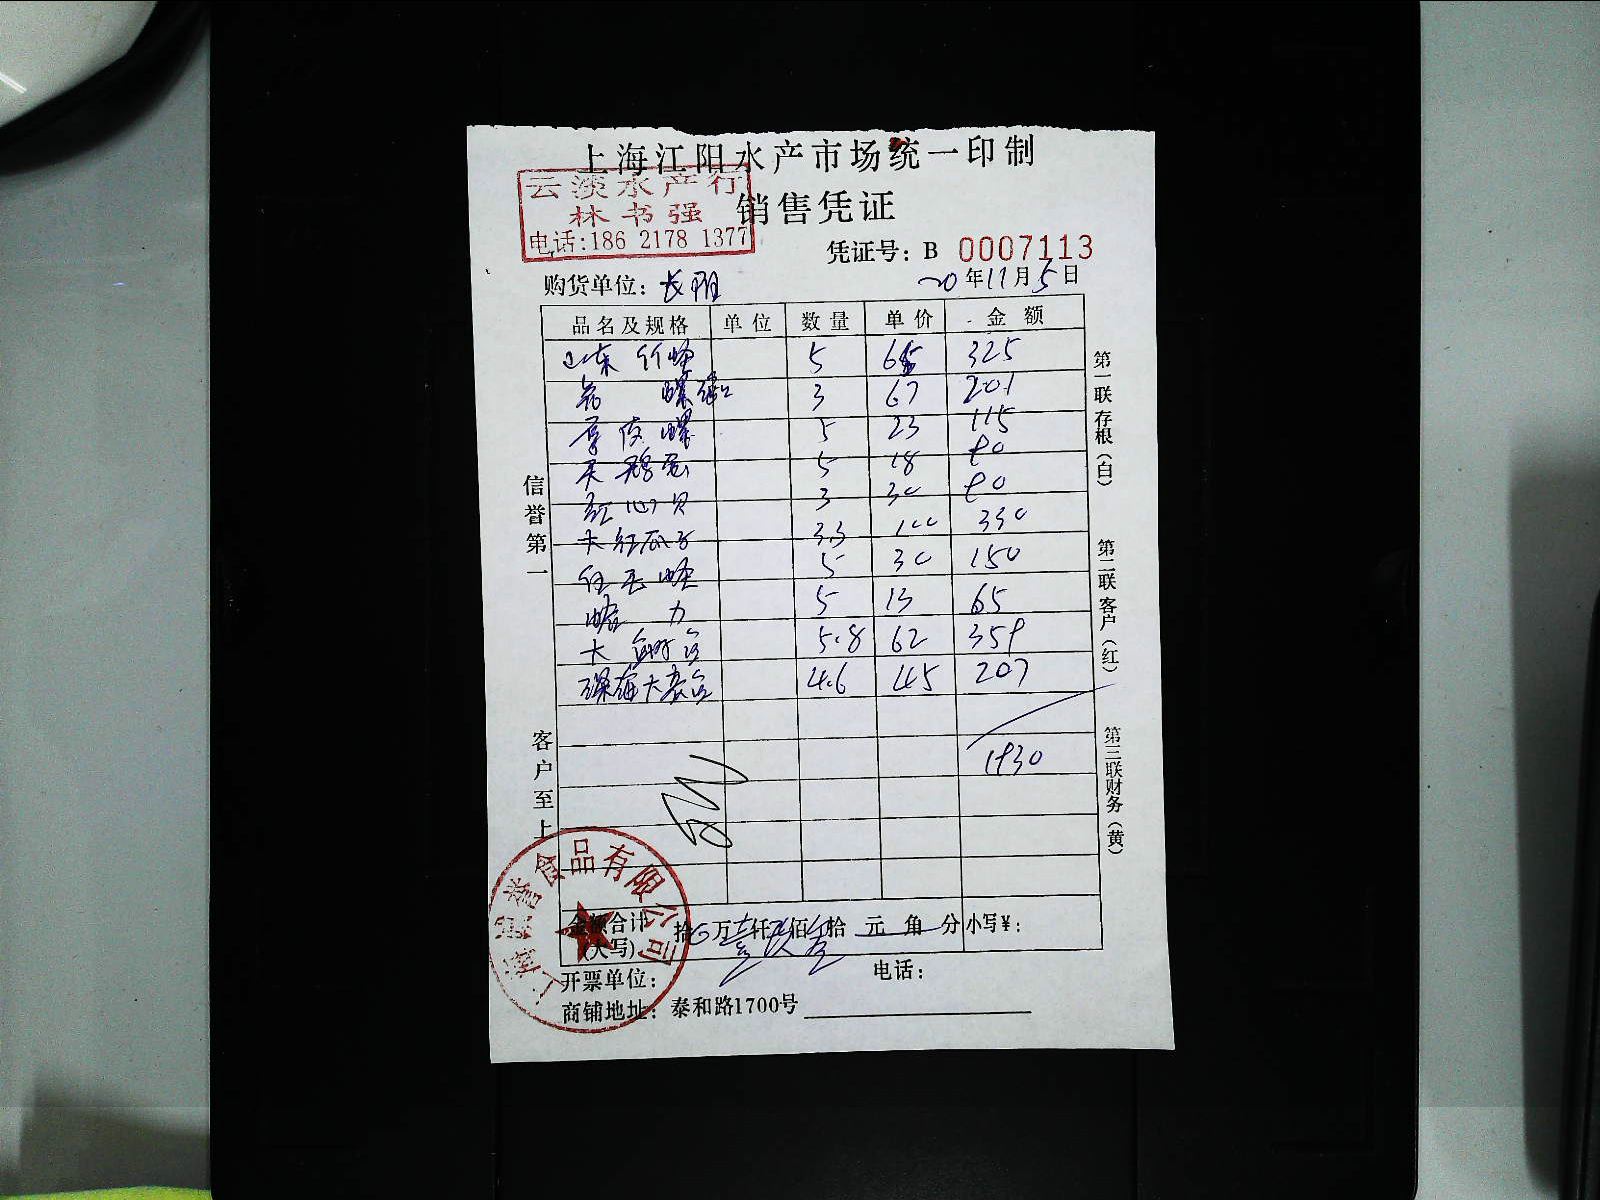 上海江阳水产市场统一印制
云淡水产行
林书强
电话:186 2178 1377
销售凭证
凭证号: B 0007113
购货单位: 长阳
20年11月5日
品名及规格 单位 数量 单价 金额
山东竹蛏 5 65 325
螺 3 67 201
螺 5 23 115
天鹅蛋 5 18 90
红心贝 3 30 90
大红瓜子 3.3 100 330
蛏 5 30 150
蛤力 5 13 65
大 5.8 62 359
深海大 4.6 45 207
1930
金额合计(大写) 拾0万壹仟玖佰叁拾元角分 小写¥:
开票单位: 电话:
商铺地址: 泰和路1700号
信誉第一
客户至上
第一联存根(白)
第二联客户(红)
第三联财务(黄)
食品有限公司